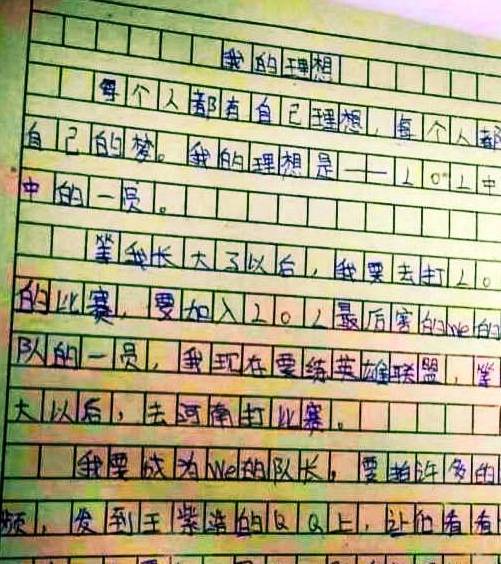 我的理想
每个人都有自己理想，每个人都
自己的梦。我的理想是——LOL中
中的一员。
等我长大了以后，我要去打LO
的比赛，要加入LOL最后赛的We的
队的一员，我现在要练英雄联盟，等
大以后，去河南打比赛。
我要成为We的队长，要拍许多的
频，发到王紫浩的QQ上，让他看看